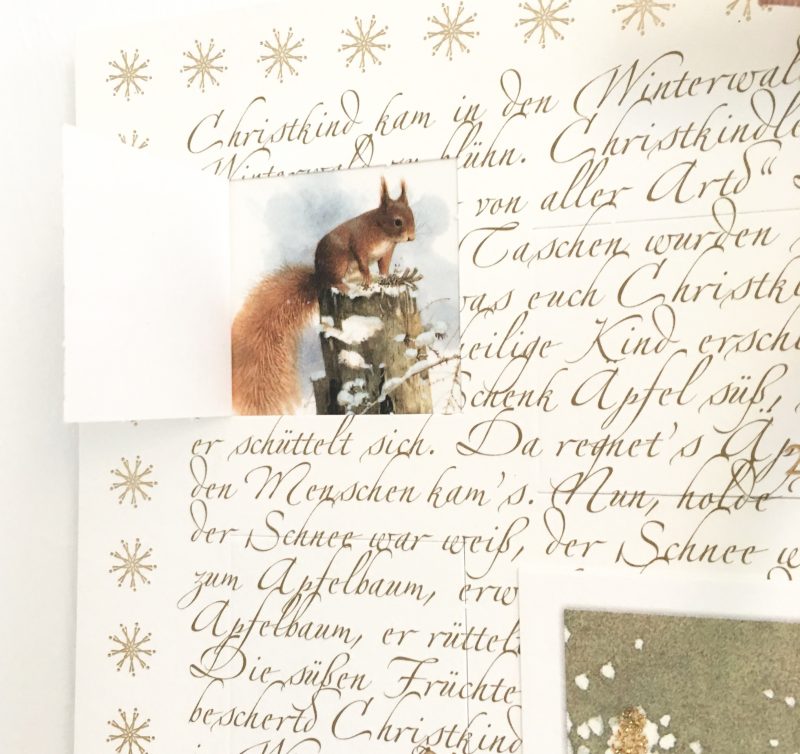 Christkind kam in den Winterwal
Winterwald zu blühn. Christkindl
von aller Artd“
Taschen wurden
was euch Christki
heilige Kind ersch
Schenk Äpfel süß,
er schüttelt sich. Da regnet's Äp
den Menschen kam's. Nun, holde
der Schnee war weiß, der Schnee w
zum Apfelbaum, erw
Apfelbaum, er rüttel
Die süßen Früchte
beschertd Christkind